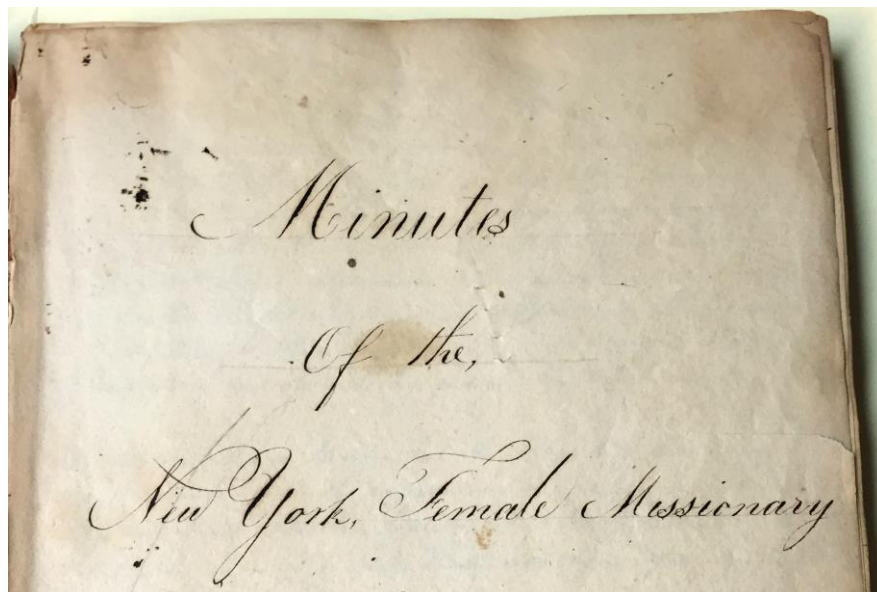 Minutes
Of the,
New York, Female Missionary